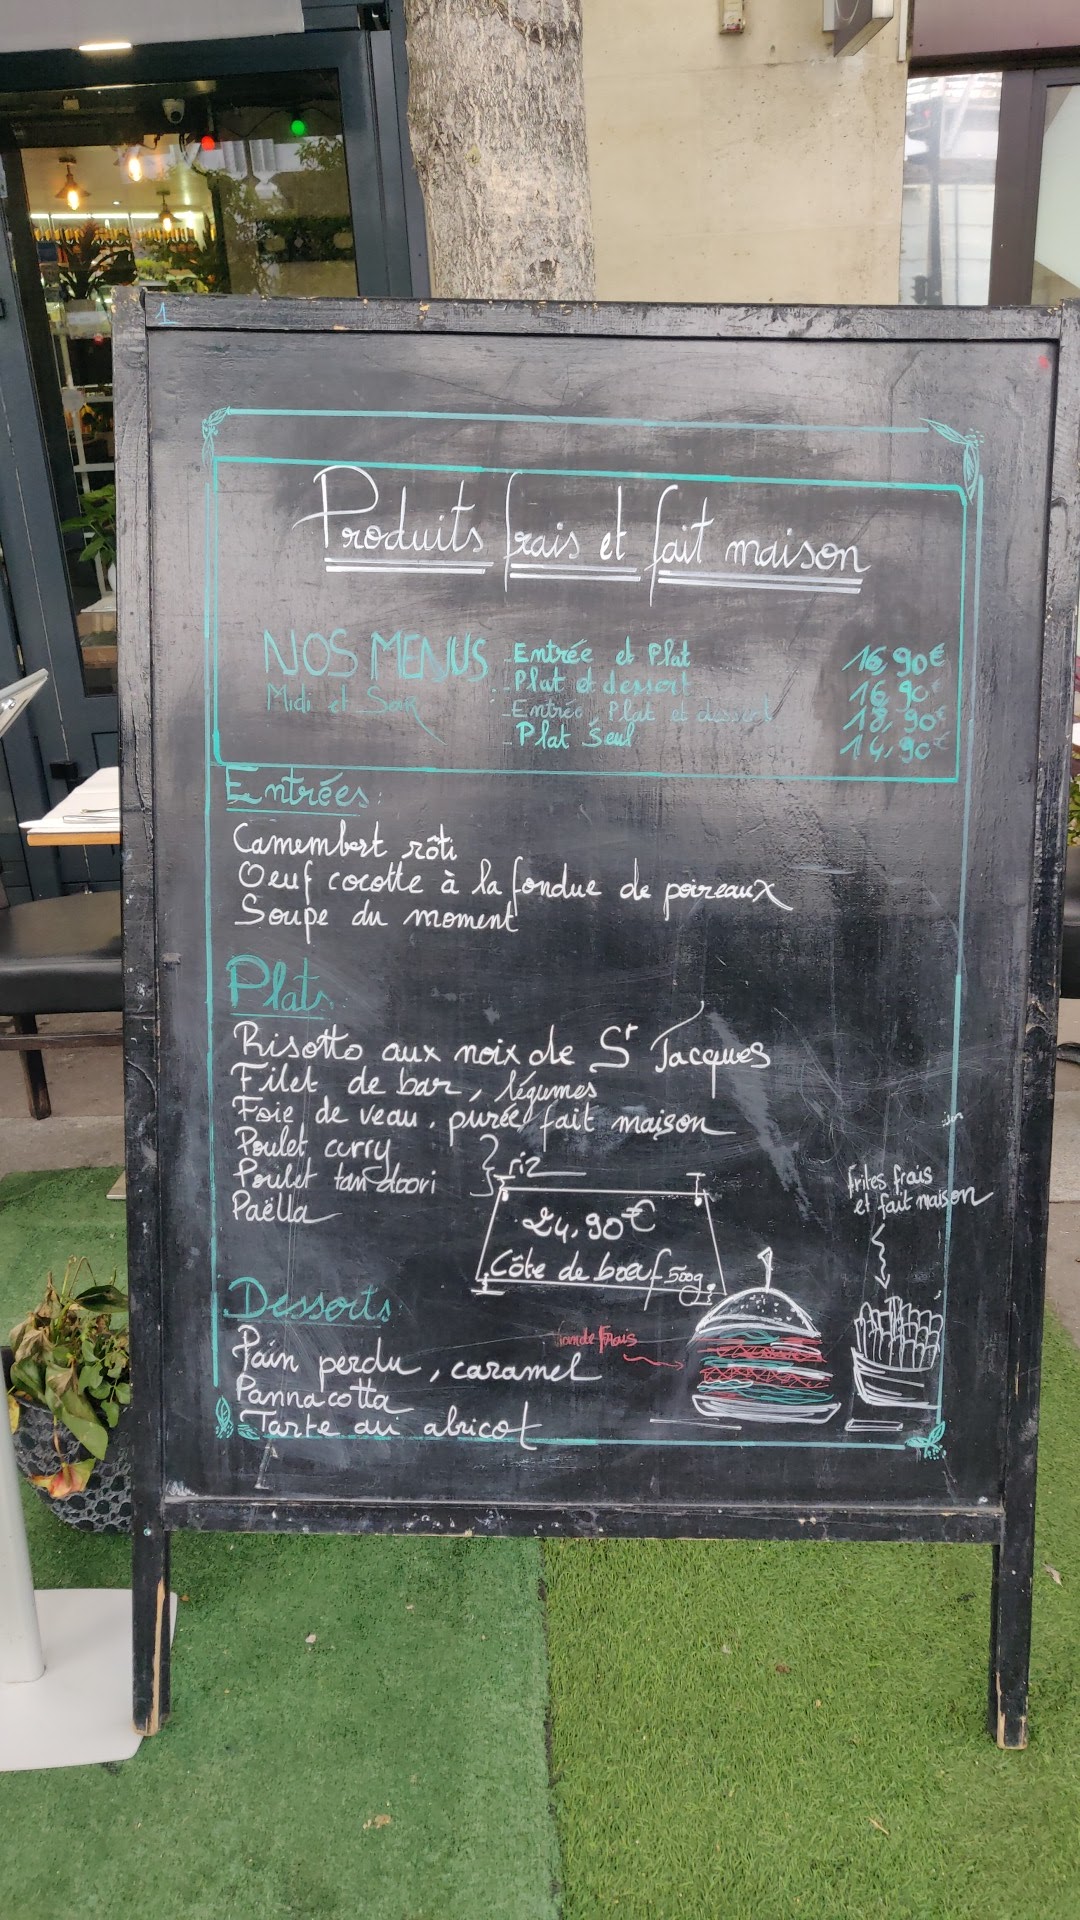 1
Produits frais et fait maison
NOS MENUS
Midi et Soir
- Entrée et Plat 16,90€
- Plat et dessert 16,90€
- Entrée, Plat et dessert 18,90€
- Plat Seul 14,90€
Entrées:
Camembert rôti
Oeuf cocotte à la fondue de poireaux
Soupe du moment
Plats
Risotto aux noix de St Jacques
Filet de bar, légumes
Foie de veau, purée fait maison
Poulet curry
Poulet tandoori
riz
Paëlla
24,90€
Côte de bœuf 500g
frites frais
et fait maison
Desserts:
Frais
Pain perdu, caramel
Pannacotta
Tarte au abricot